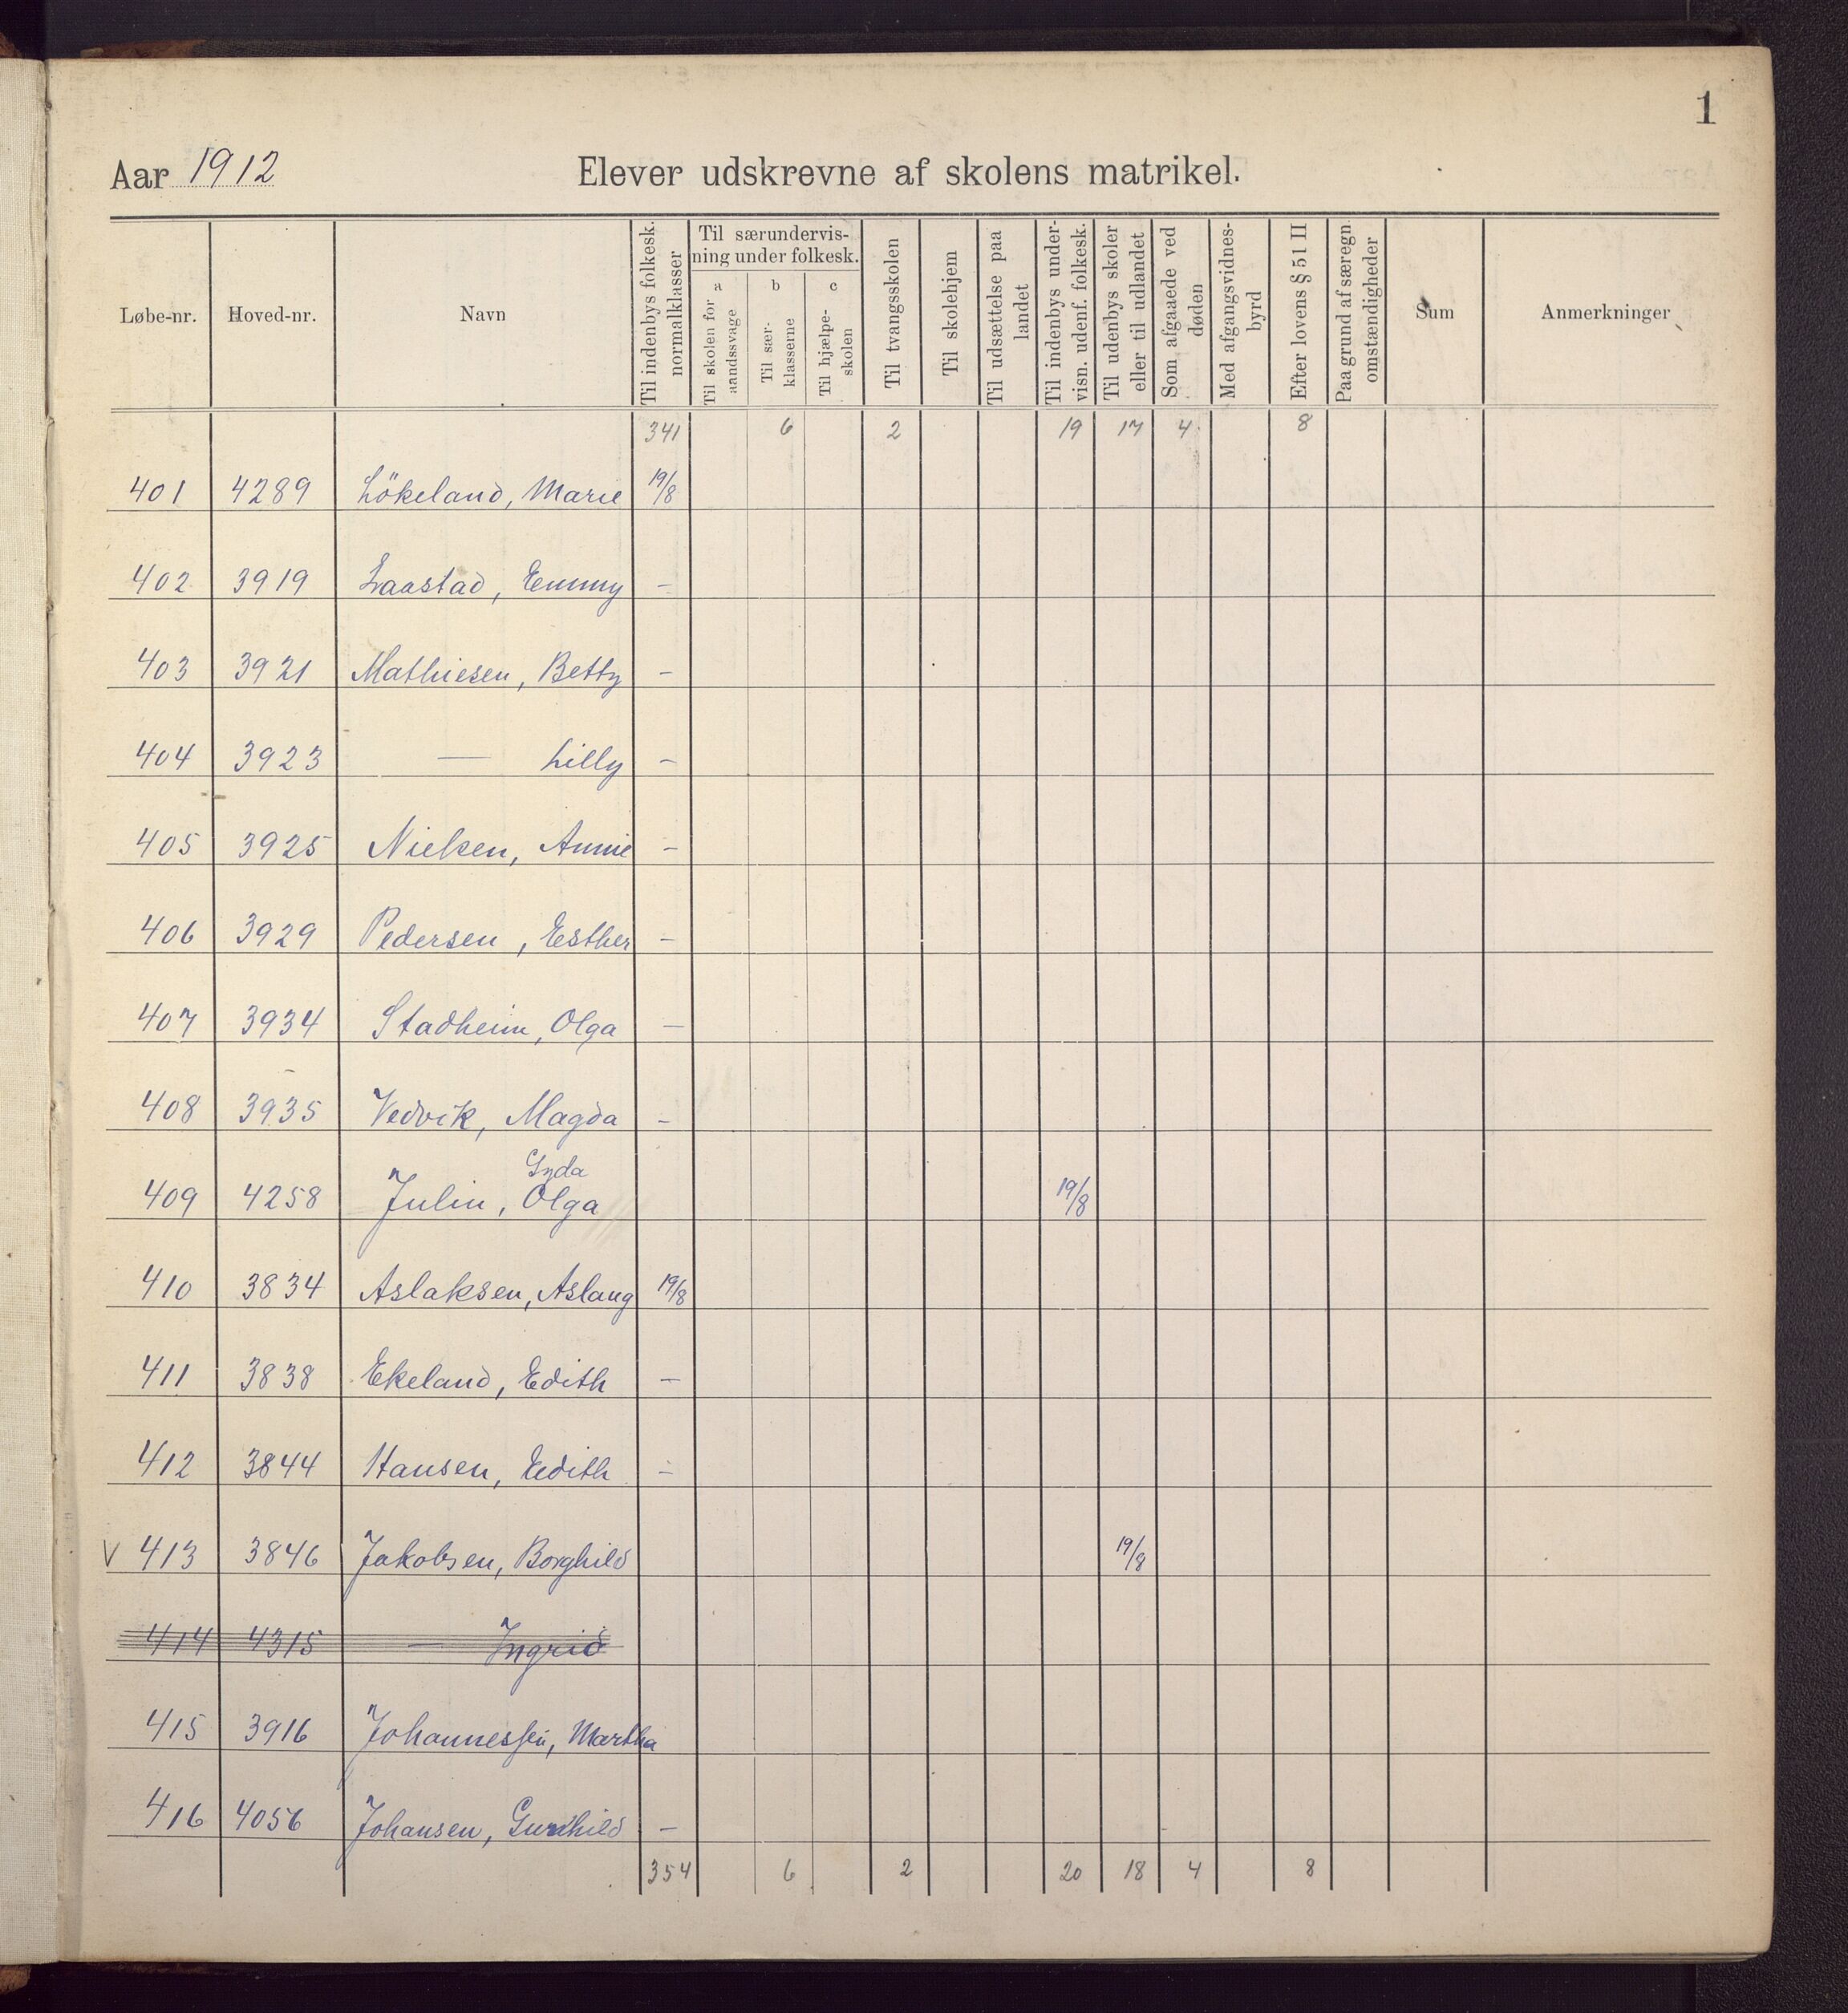 1
Aar 1912 Elever udskrevne af skolens matrikel.
Løbe-nr. Hoved-nr. Navn Til indenbys folkesk. normalklasser Til særundervisning under folkesk. a Til skolen for aandssvage b Til særklasserne c Til hjælpeskolen Til tvangsskolen Til skolehjem Til udsættelse paa landet Til indenbys undervisn. udenf. folkesk. Til udenbys skoler eller til udlandet Som afgaaede ved døden Med afgangsvidnesbyrd Efter lovens § 51 II Paa grund af særegn. omstændigheder Sum Anmerkninger
341 6 2 19 17 4 8
401 4289 Lökeland, Marie 19/8
402 3919 Laastad, Emmy –
403 3921 Mathiesen, Betty –
404 3923 — Lilly –
405 3925 Nielsen, Annie –
406 3929 Pedersen, Esther –
407 3934 Stadheim, Olga –
408 3935 Vedvik, Magda –
Gyda
409 4258 Julin, Olga 19/8
410 3834 Aslaksen, Aslaug 19/8
411 3838 Ekeland, Edith –
412 3844 Hansen, Edith –
V 413 3846 Jakobsen, Borghild 19/8
414 4315 — Ingrid
415 3916 Johannessen, Martha
416 4056 Johansen, Gunhild –
354 6 2 20 18 4 8